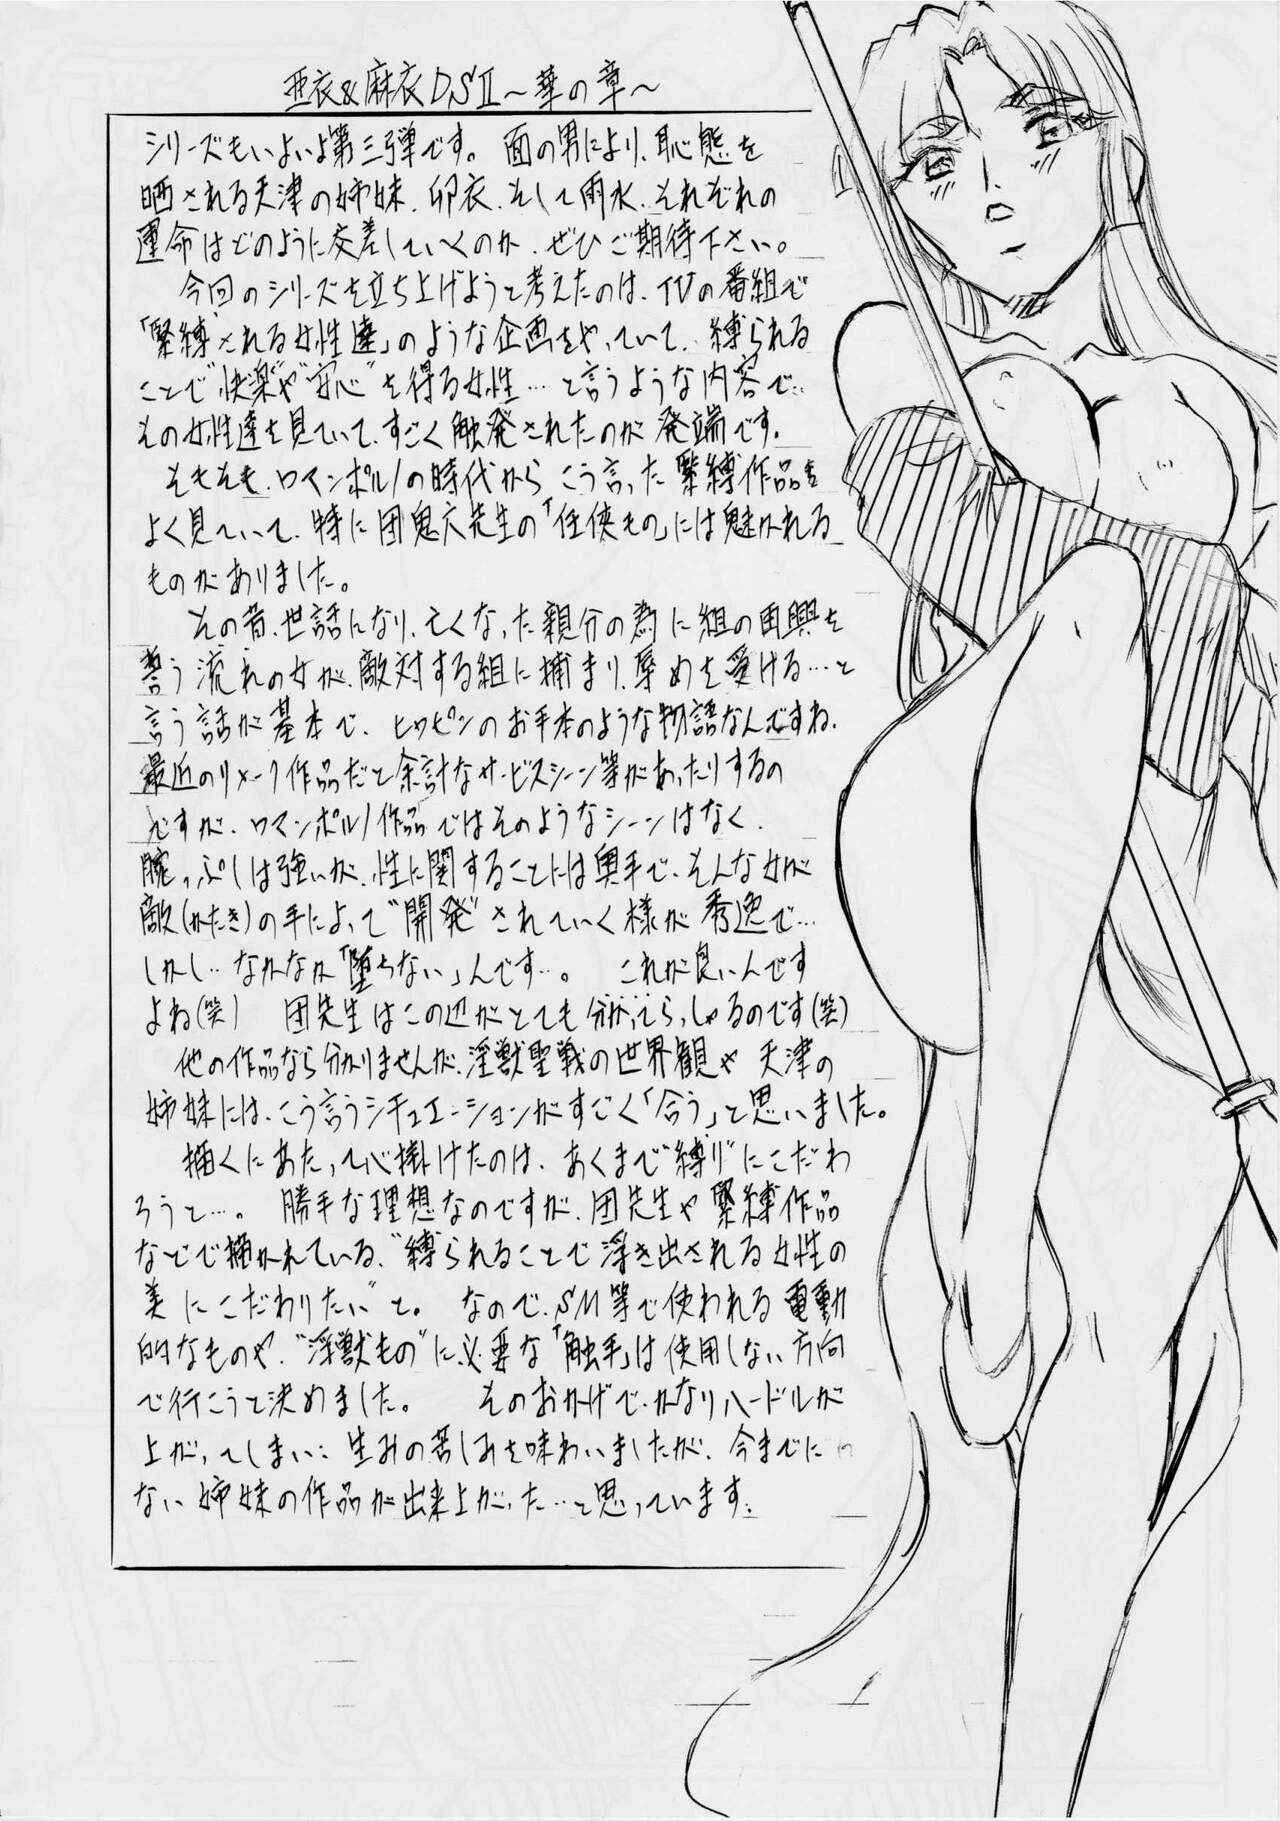 亜衣&麻衣D,SⅡ～華の章～
シリーズもいよいよ第三弾です。 面の男により、恥態を
晒される天津の姉妹、卯衣、そして雨水、それぞれの
運命はどのように交差していくのか、ぜひご期待下さい。
今回のシリーズを立ち上げようと考えたのは、TVの番組で
「緊縛される女性達」のような企画をやっていて、縛られる
ことで“快楽”や“安心”を得る女性…と言うような内容で…
その女性達を見ていて、すごく触発されたのが発端です。
そもそも、ロマンポルノの時代からこう言った緊縛作品を
よく見ていて、特に団鬼六先生の「任侠もの」には魅かれる
ものがありました。
その昔、世話になり、亡くなった親分の為に組の再興を
誓う流れの女が、敵対する組に捕まり、辱めを受ける…と
言う話が基本で、ヒロピンのお手本のような物語なんですね。
最近のリメーク作品だと余計なサービスシーン等があったりするの
ですが、ロマンポルノ作品ではそのようなシーンはなく、
腕っぷしは強いが、性に関することには奥手で、そんな女が
敵(かたき)の手によって“開発”されていく様が秀逸で…
しかし…なかなか「堕ちない」んです…。 これが良いんです
よね(笑) 団先生はこの辺がとても分かってらっしゃるのです(笑)
他の作品なら分かりませんが、淫獣聖戦の世界観や天津の
姉妹には、こう言うシチュエーションがすごく「合う」と思いました。
描くにあたって心掛けたのは、あくまで“縛り”にこだわ
ろうと…。 勝手な理想なのですが、団先生や緊縛作品
などで描かれている、“縛られることで浮き出される女性の
美にこだわりたい”と。 なので、SM等で使われる電動
的なものや、“淫獣もの”に必要な「触手」は使用しない方向
で行こうと決めました。 そのおかげで、かなりハードルが
上がってしまい… 生みの苦しみを味わいましたが、今までに
ない姉妹の作品が出来上がった…と思っています。